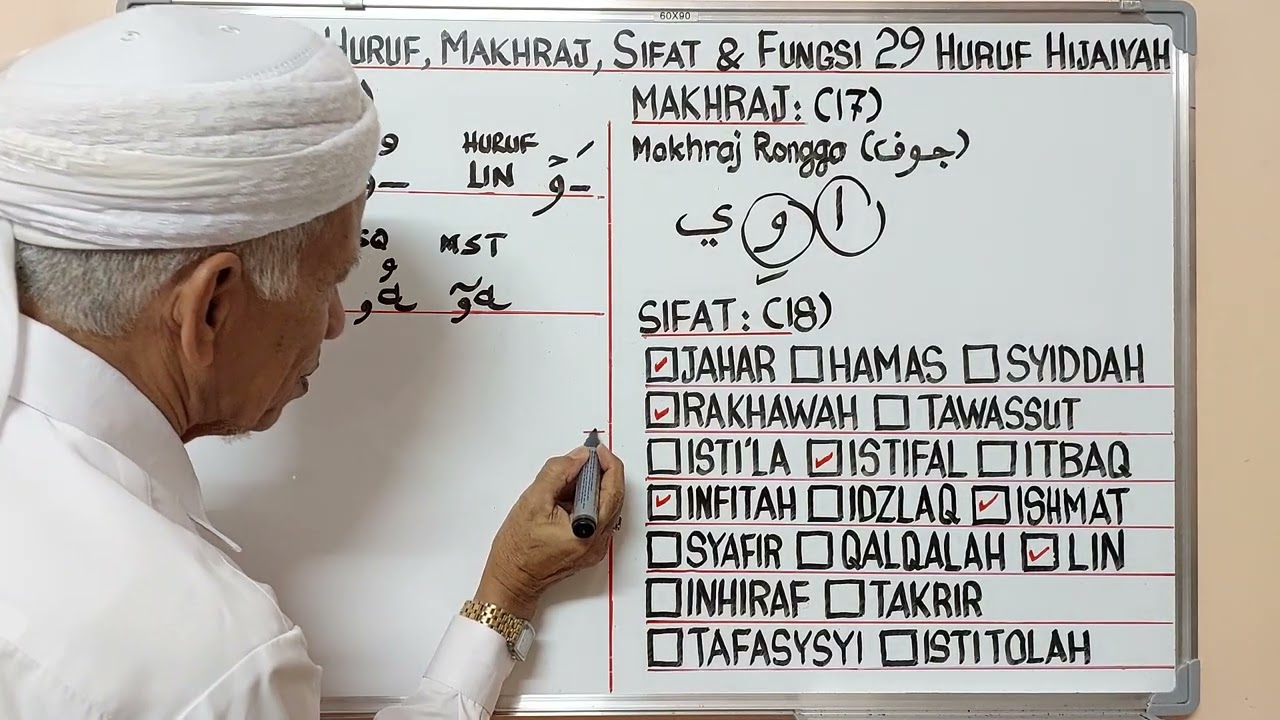 60X90
HURUF, MAKHRAJ, SIFAT & FUNGSI 29 HURUF HIJAIYAH
HURUF
LIN
ـَوْ
SQ MST
MAKHRAJ: (17)
Makhraj Rongga (جوف)
ا و ي
SIFAT: (18)
JAHAR HAMAS SYIDDAH
RAKHAWAH TAWASSUT
ISTI'LA ISTIFAL ITBAQ
INFITAH IDZLAQ ISHMAT
SYAFIR QALQALAH LIN
INHIRAF TAKRIR
TAFASYSYI ISTITOLAH